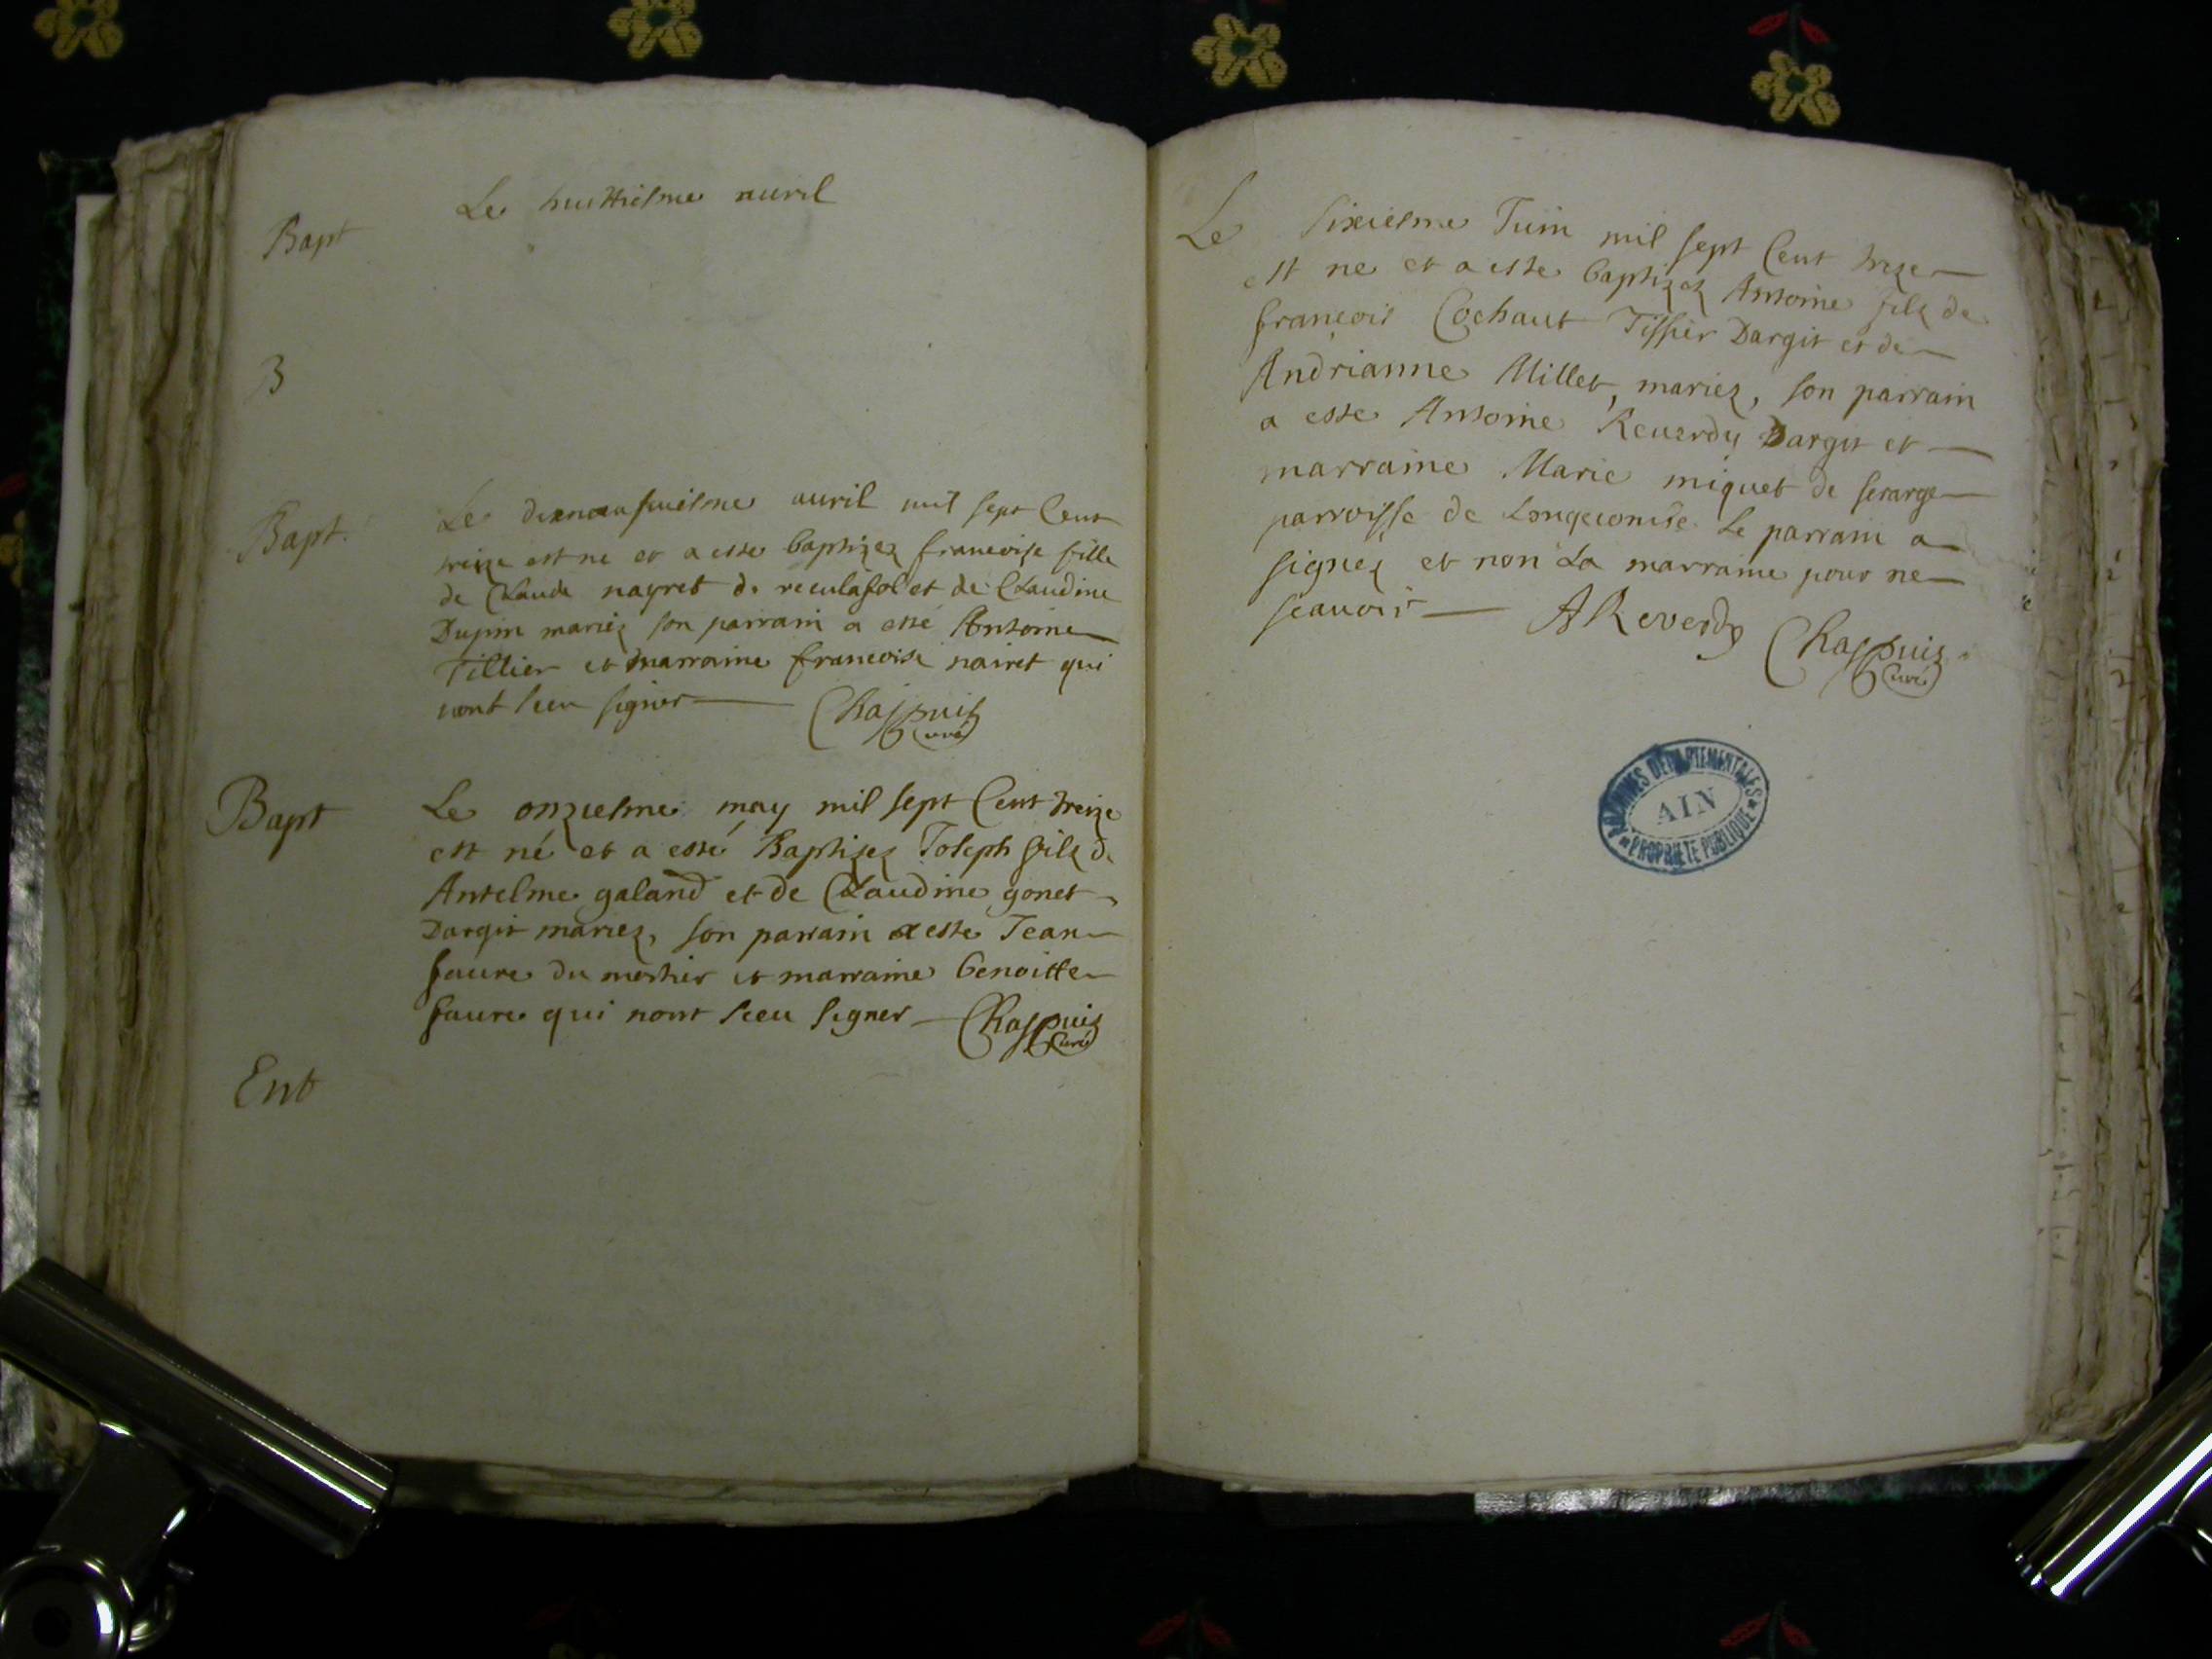 Bapt
Le huittiesme auril
B
Bapt.
Le dixneufuiesme auril mil sept Cent
treize est ne et a este baptizez francoise fille
de Claude nayret de reculafol et de Claudine
Dupin mariez son parrain a esté Antoine
Tillier et marraine francoise nairet qui
nont sceu signer Chappuis
Curé
Bapt
Le onziesme may mil sept Cent treize
est né et a esté Baptizez Joseph filz de
Antelme galand et de Claudine gonet
Dargit mariez, son parrain a este Jean
faure du mestier et marraine benoitte
faure qui nont sceu signer Chappuis
Curé
Ent
Le sixiesme Juin mil sept Cent treze
est ne et a este baptizez Antoine filz de
francois Cochaut Tissier Dargit et de
Andrianne Millet, mariez, son parrain
a este Antoine Reuerdy Dargit et
marraine Marie miquet de serarge
parroisse de Longecombe Le parrain a
signez et non La marraine pour ne
scauoir A Reverdy Chappuis
Curé
ARCHIVES DEPARTEMENTALES
AIN
PROPRIETE PUBLIQUE